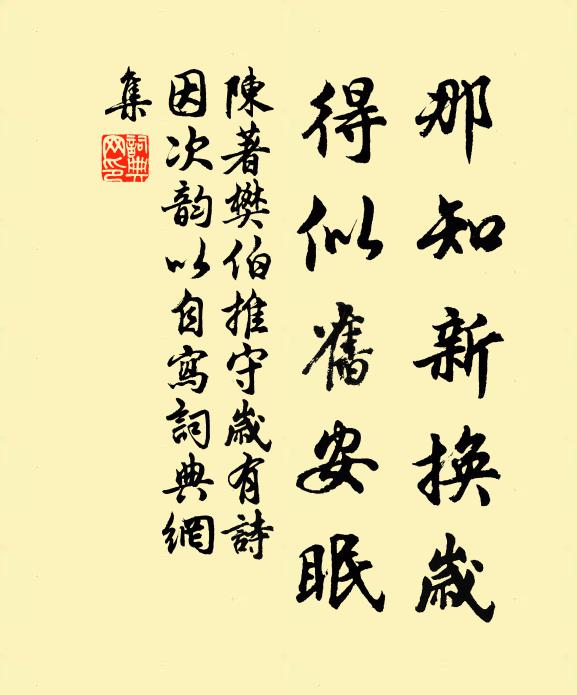 那知新換歲
得似舊安眠
陳著樊伯推守歲有詩
因次韵以自寫詞典網
集
詞典
網印